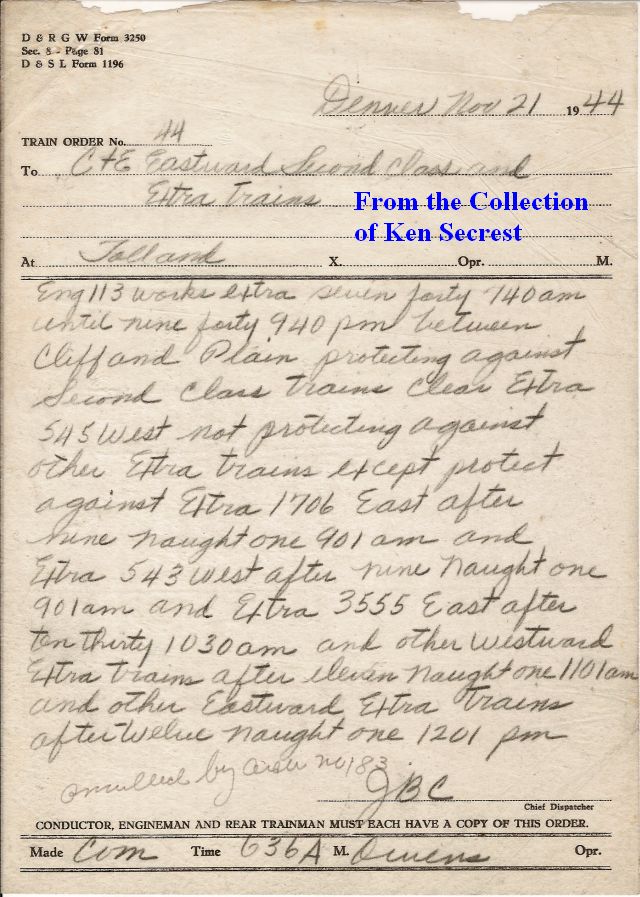 D & R G W Form 3250
Sec. 8 - Page 81
D & S L Form 1196
Denver Nov 21 1944
TRAIN ORDER No. 44
To C+E Eastward Second Class and
Extra trains
From the Collection
of Ken Secrest
At Tolland X. Opr. M.
Eng 113 works extra seven forty 740 am
until nine forty 940 pm between
Cliff and Plain protecting against
Second Class trains Clear Extra
545 West not protecting against
other Extra trains except protect
against Extra 1706 East after
nine naught one 901 am and
Extra 543 West after nine naught one
901am and Extra 3555 East after
ten thirty 1030am and other Westward
Extra trains after eleven naught one 1101am
and other Eastward Extra trains
after twelve naught one 1201 pm
annulled by order no 183
JBC
Chief Dispatcher
CONDUCTOR, ENGINEMAN AND REAR TRAINMAN MUST EACH HAVE A COPY OF THIS ORDER.
Made Com Time 636A M. Owens Opr.